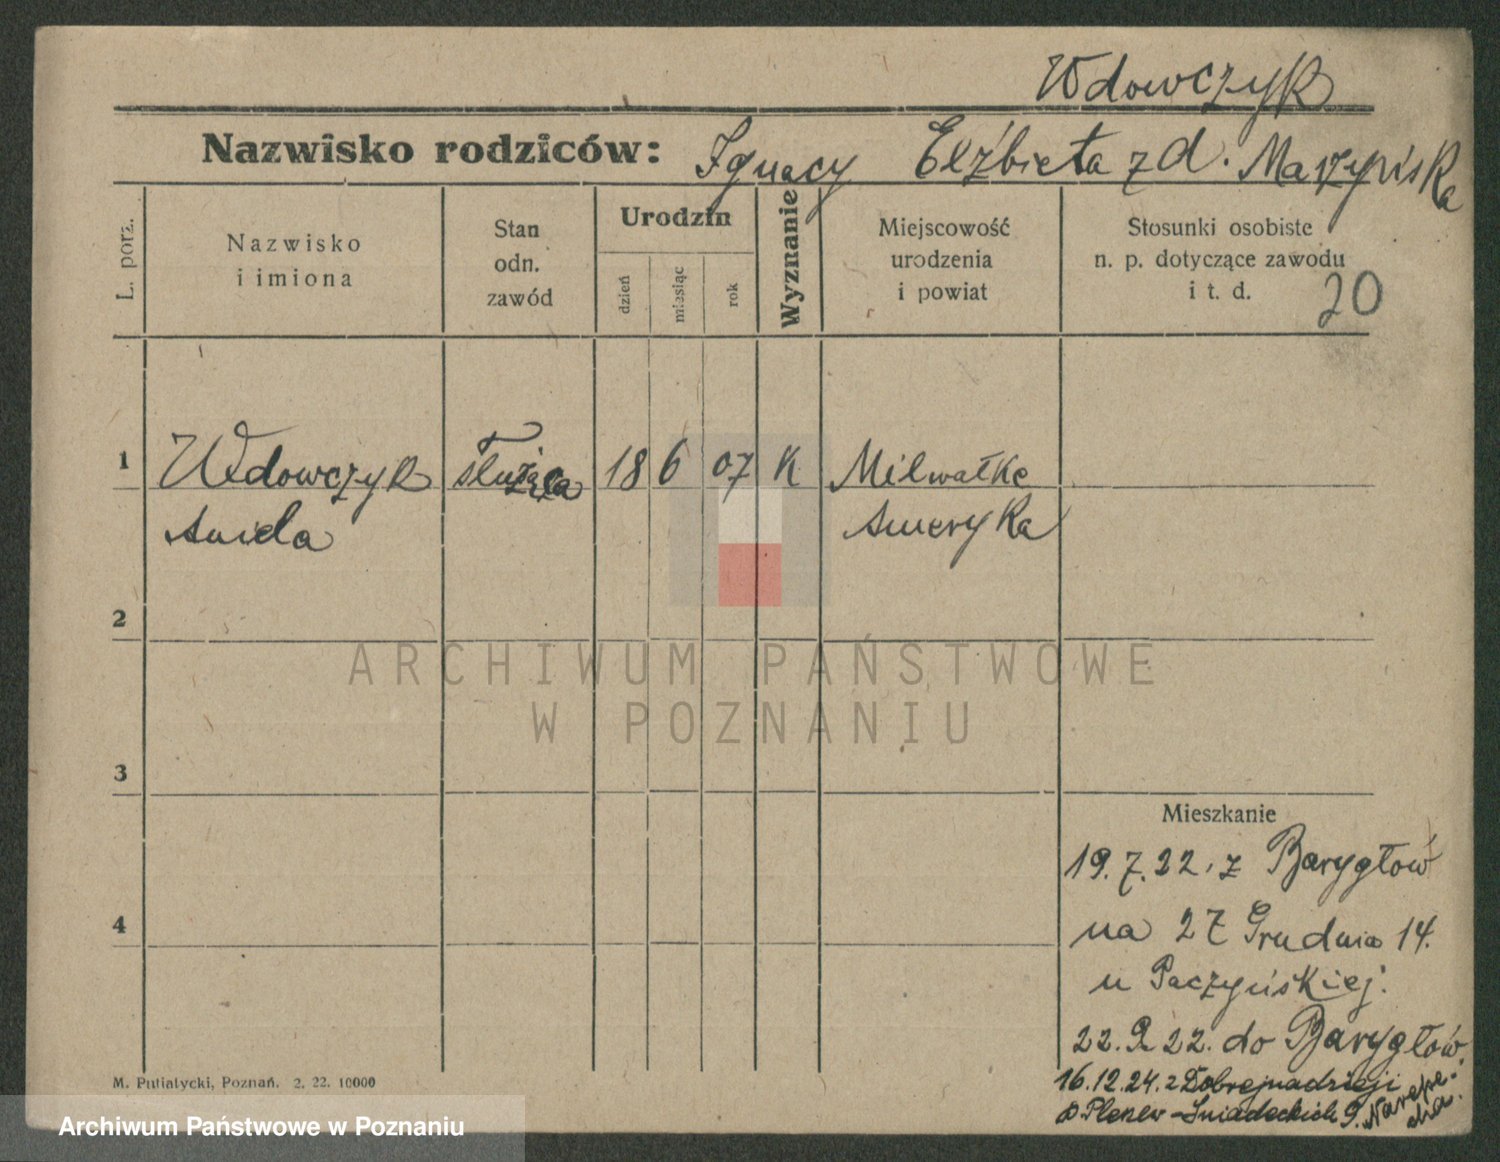 Wdowczyk
Nazwisko rodziców: Ignacy Elżbieta z d. Maszyńska
L. porz.
Nazwisko
i imiona
Stan
odn.
zawód
Urodzin
dzień
miesiąc
rok
Wyznanie
Miejscowość
urodzenia
i powiat
Stosunki osobiste
n. p. dotyczące zawodu
i t. d.
20
1 Wdowczyk służąca 18 6 07 K Milwałke
Aniela Ameryka
2
3
4
ARCHIWUM PAŃSTWOWE
W POZNANIU
Mieszkanie
19.7.22. z Barygłów
na 27 Grudnia 14.
u Paczyńskiej.
22.9.22. do Barygłów.
16.12.24. z Dobrejnadzieji
p. Plenew-Śniadeckich 9.
M. Putiatycki, Poznań. 2. 22. 10000
Archiwum Państwowe w Poznaniu